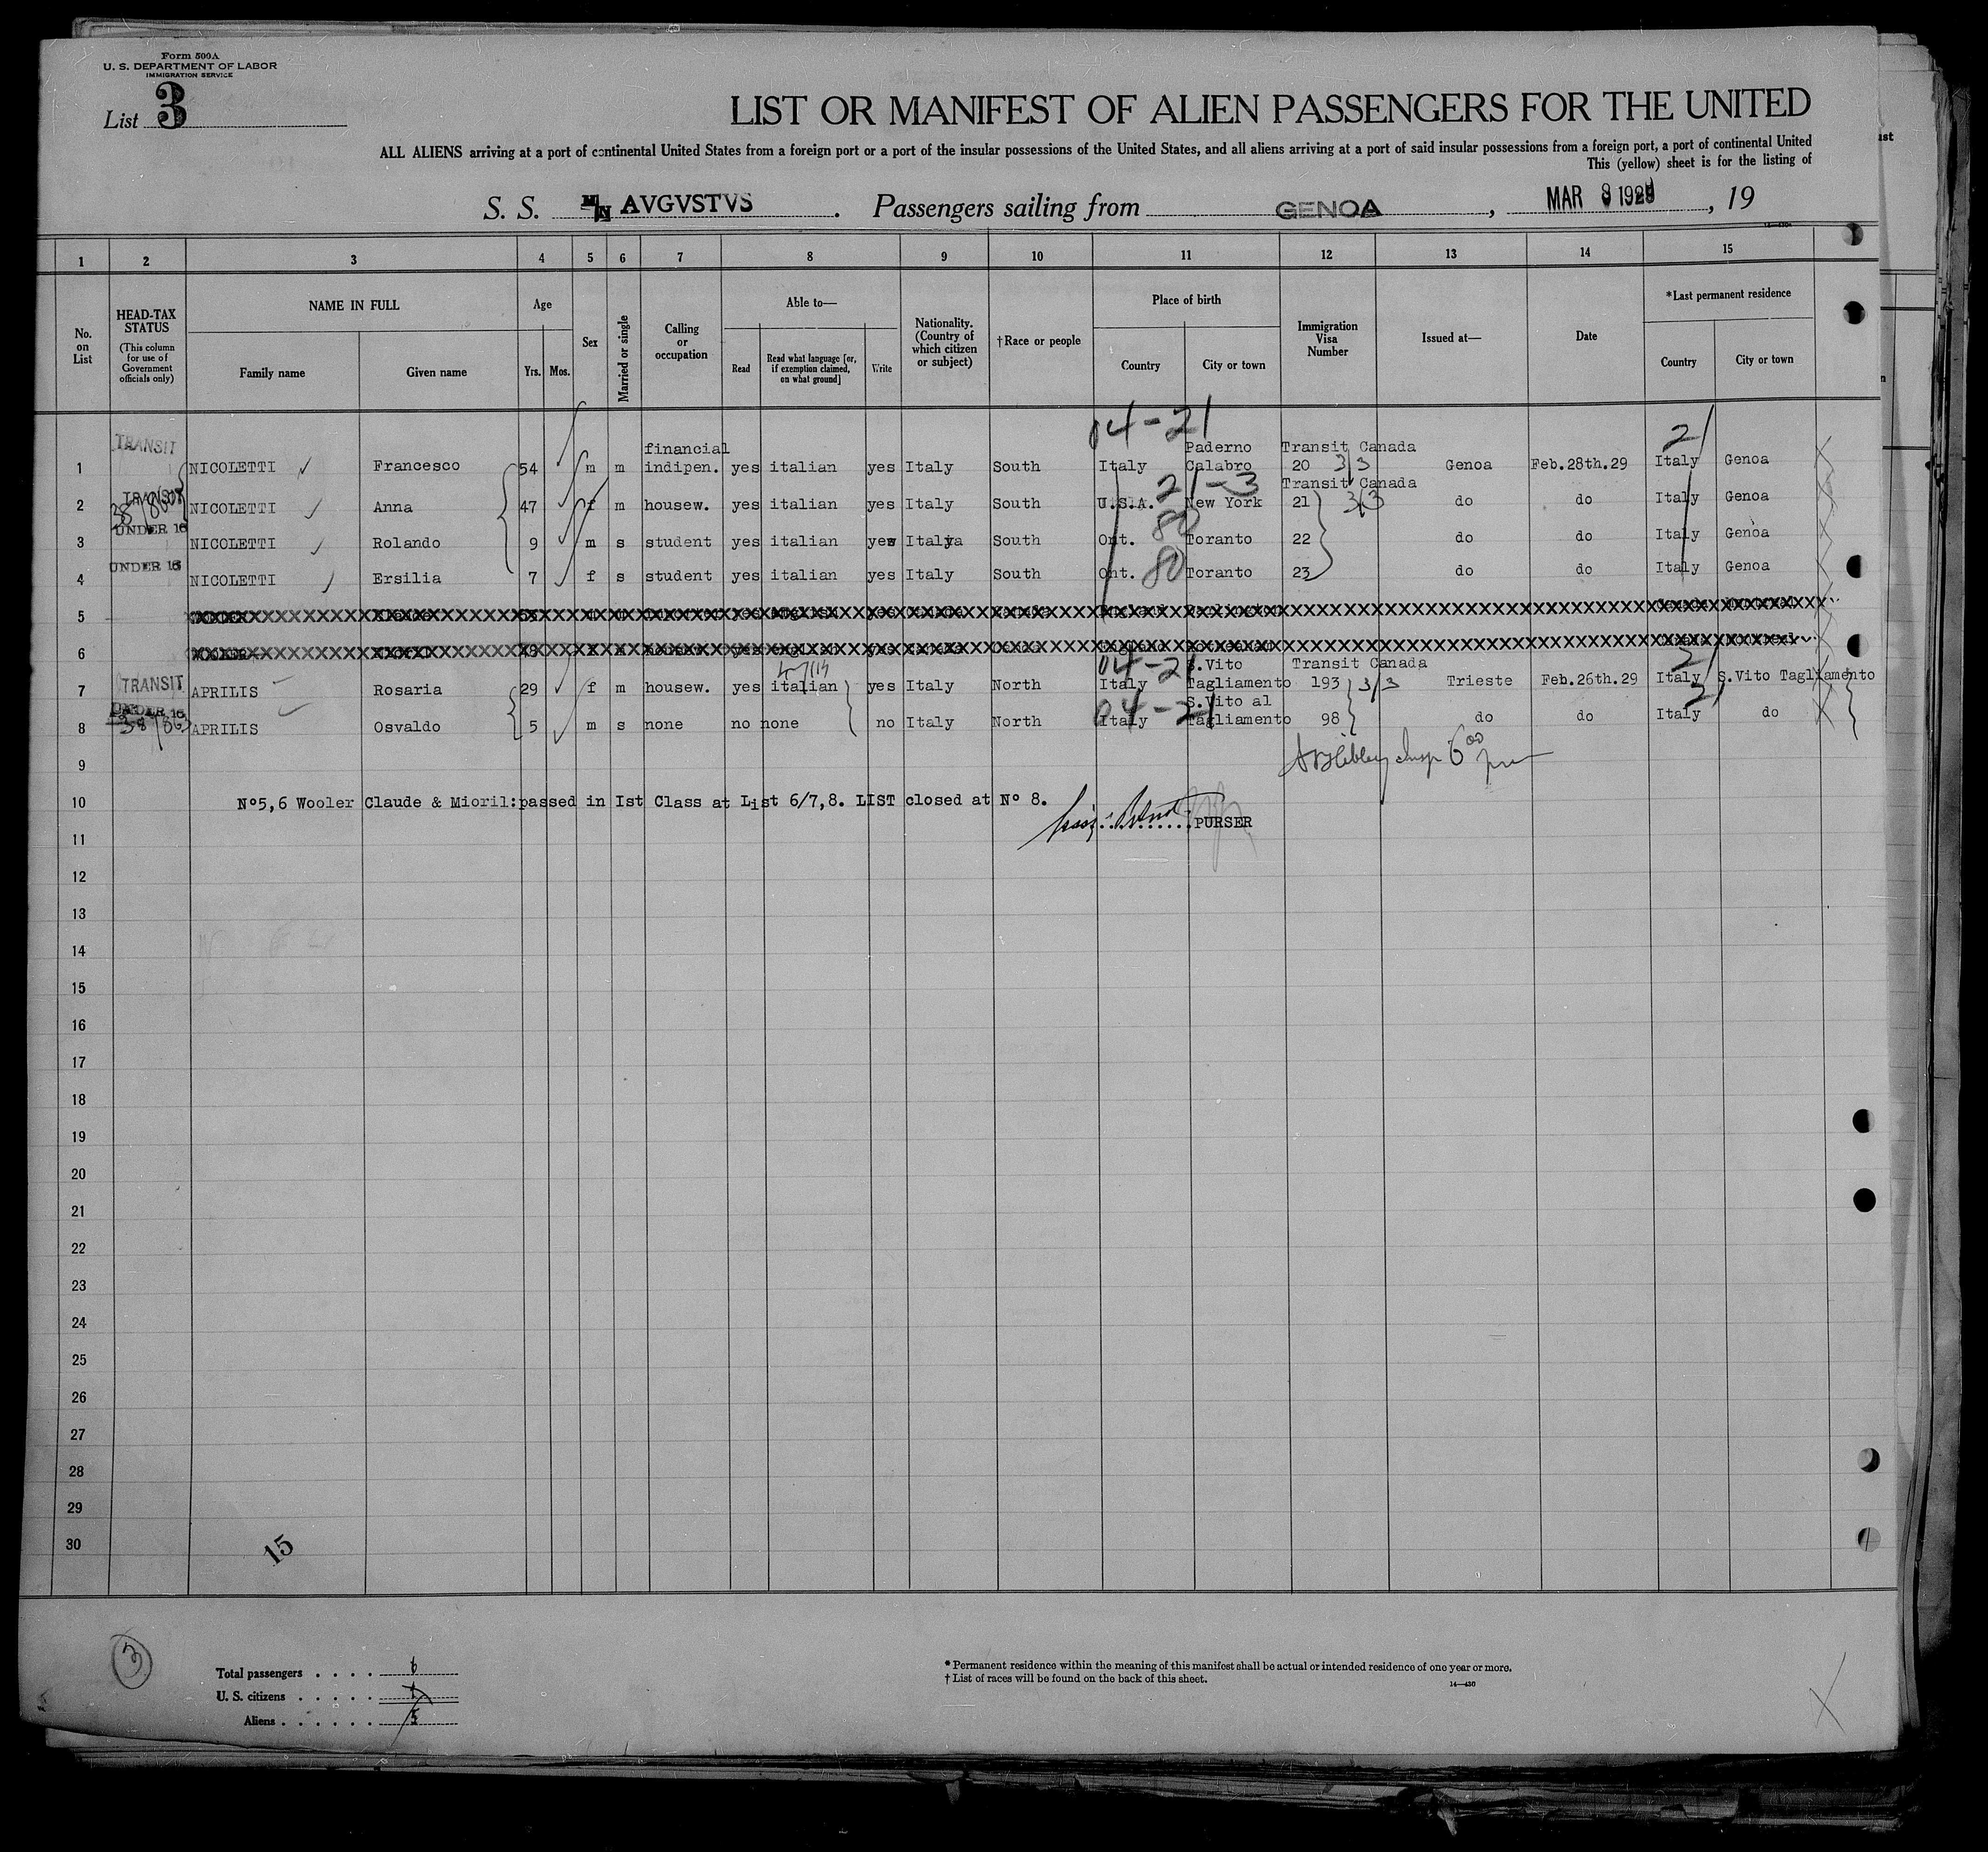 Form 500A
U. S. DEPARTMENT OF LABOR
IMMIGRATION SERVICE
List 3
LIST OR MANIFEST OF ALIEN PASSENGERS FOR THE UNITED
ALL ALIENS arriving at a port of continental United States from a foreign port or a port of the insular possessions of the United States, and all aliens arriving at a port of said insular possessions from a foreign port, a port of continental United
This (yellow) sheet is for the listing of
S. S. M/N AVGVSTVS. Passengers sailing from GENOA, MAR 8 1929, 19
1 2 3 4 5 6 7 8 9 10 11 12 13 14 15
No. on List
HEAD-TAX STATUS (This column for use of Government officials only)
NAME IN FULL Family name Given name
Age Yrs. Mos.
Sex
Married or single
Calling or occupation
Able to— Read Read what language [or, if exemption claimed, on what ground] Write
Nationality. (Country of which citizen or subject)
†Race or people
Place of birth Country City or town
Immigration Visa Number
Issued at—
Date
*Last permanent residence Country City or town
04-21 21
TRANSIT financial Paderno Transit Canada
1 NICOLETTI Francesco 54 m m indipen. yes italian yes Italy South Italy Calabro 20 3/3 Genoa Feb.28th.29 Italy Genoa
TRANSIT 21-3 Transit Canada
2 NICOLETTI Anna 47 f m housew. yes italian yes Italy South U.S.A. New York 21 3/3 do do Italy Genoa
UNDER 16 80
3 NICOLETTI Rolando 9 m s student yes italian yes Italy South Ont. Toranto 22 do do Italy Genoa
UNDER 16 80
4 NICOLETTI Ersilia 7 f s student yes italian yes Italy South Ont. Toranto 23 do do Italy Genoa
5
6
TRANSIT 04-21 S.Vito Transit Canada 21
7 APRILIS Rosaria 29 f m housew. yes italian yes Italy North Italy Tagliamento 193 3/3 Trieste Feb.26th.29 Italy S.Vito Tagliamento
UNDER 16 04-21 S.Vito al 21
8 APRILIS Osvaldo 5 m s none no none no Italy North Italy Tagliamento 98 do do Italy do
9
10 Nº5,6 Wooler Claude & Mioril:passed in Ist Class at List 6/7,8. LIST closed at Nº 8.
PURSER
11
12
13
14
15
16
17
18
19
20
21
22
23
24
25
26
27
28
29
30
15
3
Total passengers . . . . 6
U. S. citizens . . . . .
Aliens . . . . . . 5
* Permanent residence within the meaning of this manifest shall be actual or intended residence of one year or more.
† List of races will be found on the back of this sheet.
14—430